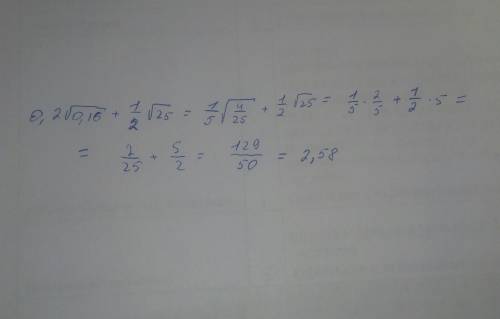 0,2√0,16 + 1/2 √25 = 1/5 √4/25 + 1/2 √25 = 1/5 · 2/5 + 1/2 · 5 =
= 2/25 + 5/2 = 129/50 = 2,58